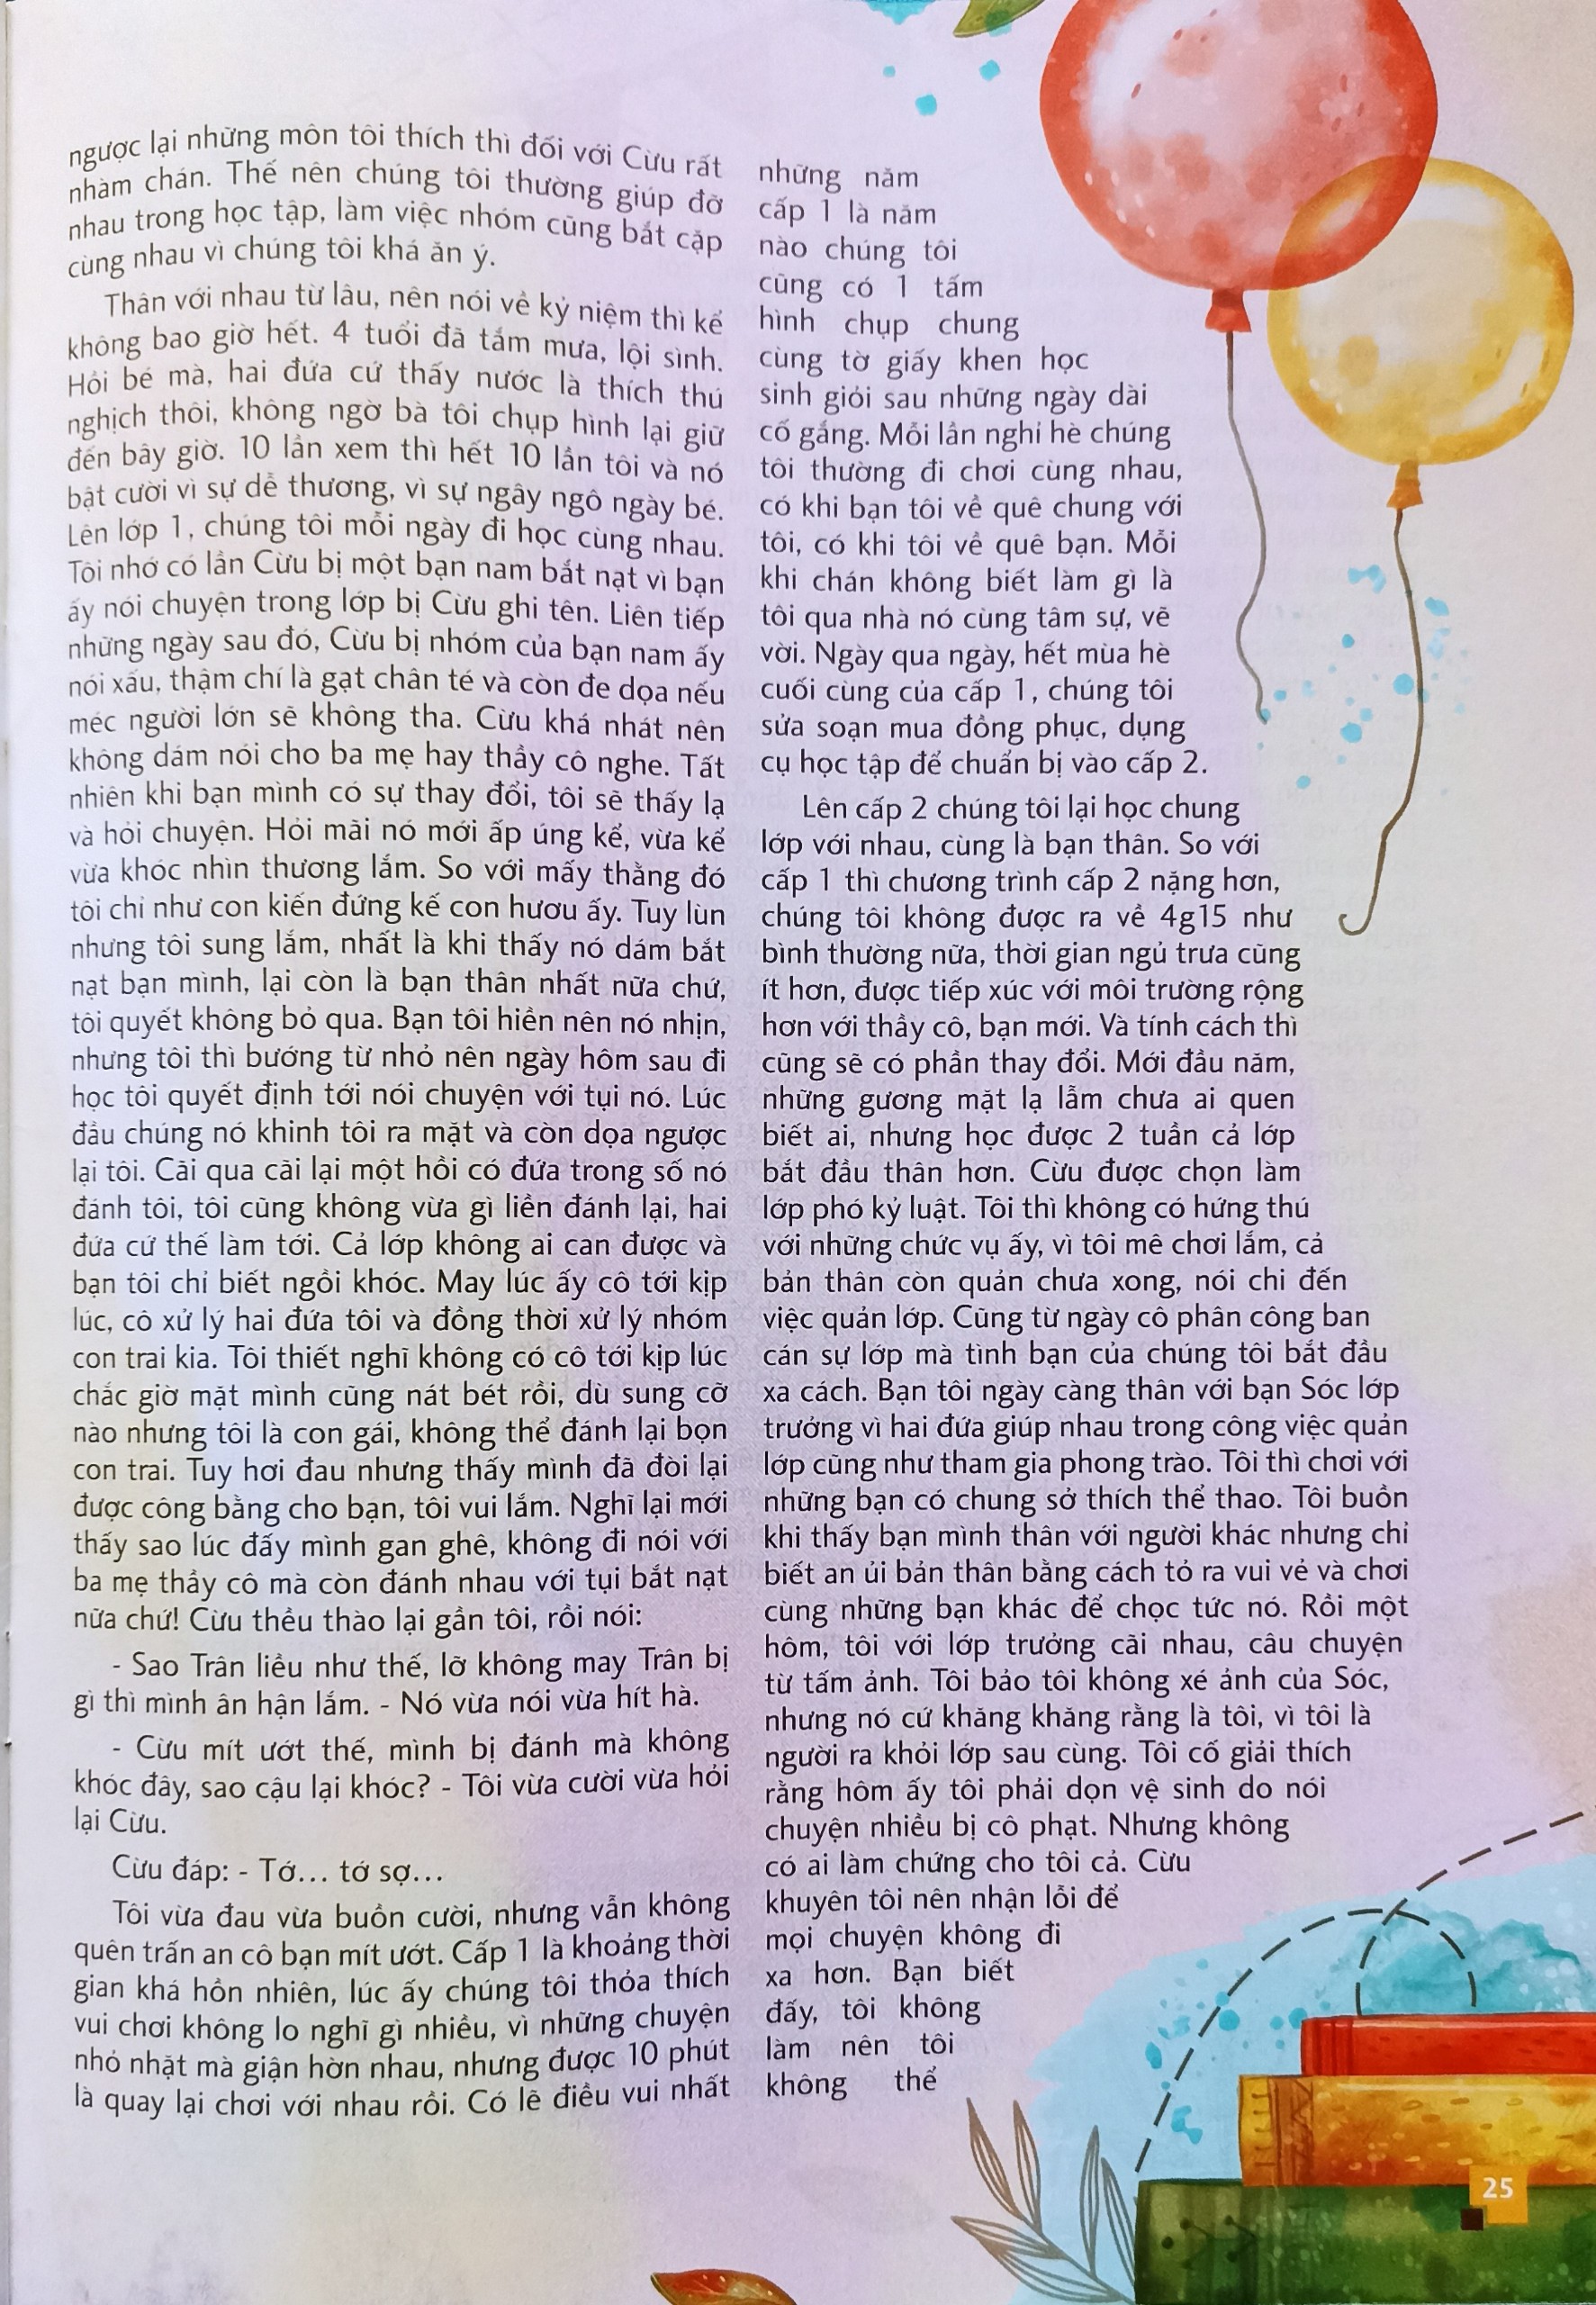 ngược lại những môn tôi thích thì đối với Cừu rất
nhàm chán. Thế nên chúng tôi thường giúp đỡ
nhau trong học tập, làm việc nhóm cũng bắt cặp
cùng nhau vì chúng tôi khá ăn ý.
Thân với nhau từ lâu, nên nói về kỷ niệm thì kể
không bao giờ hết. 4 tuổi đã tắm mưa, lội sình.
Hồi bé mà, hai đứa cứ thấy nước là thích thú
nghịch thôi, không ngờ bà tôi chụp hình lại giữ
đến bây giờ. 10 lần xem thì hết 10 lần tôi và nó
bật cười vì sự dễ thương, vì sự ngây ngô ngày bé.
Lên lớp 1, chúng tôi mỗi ngày đi học cùng nhau.
Tôi nhớ có lần Cừu bị một bạn nam bắt nạt vì bạn
ấy nói chuyện trong lớp bị Cừu ghi tên. Liên tiếp
những ngày sau đó, Cừu bị nhóm của bạn nam ấy
nói xấu, thậm chí là gạt chân té và còn đe dọa nếu
méc người lớn sẽ không tha. Cừu khá nhát nên
không dám nói cho ba mẹ hay thầy cô nghe. Tất
nhiên khi bạn mình có sự thay đổi, tôi sẽ thấy lạ
và hỏi chuyện. Hỏi mãi nó mới ấp úng kể, vừa kể
vừa khóc nhìn thương lắm. So với mấy thằng đó
tôi chỉ như con kiến đứng kế con hươu ấy. Tuy lùn
nhưng tôi sung lắm, nhất là khi thấy nó dám bắt
nạt bạn mình, lại còn là bạn thân nhất nữa chứ,
tôi quyết không bỏ qua. Bạn tôi hiền nên nó nhịn,
nhưng tôi thì bướng từ nhỏ nên ngày hôm sau đi
học tôi quyết định tới nói chuyện với tụi nó. Lúc
đầu chúng nó khinh tôi ra mặt và còn dọa ngược
lại tôi. Cãi qua cãi lại một hồi có đứa trong số nó
đánh tôi, tôi cũng không vừa gì liền đánh lại, hai
đứa cứ thế làm tới. Cả lớp không ai can được và
bạn tôi chỉ biết ngồi khóc. May lúc ấy cô tới kịp
lúc, cô xử lý hai đứa tôi và đồng thời xử lý nhóm
con trai kia. Tôi thiết nghĩ không có cô tới kịp lúc
chắc giờ mặt mình cũng nát bét rồi, dù sung cỡ
nào nhưng tôi là con gái, không thể đánh lại bọn
con trai. Tuy hơi đau nhưng thấy mình đã đòi lại
được công bằng cho bạn, tôi vui lắm. Nghĩ lại mới
thấy sao lúc đấy mình gan ghê, không đi nói với
ba mẹ thầy cô mà còn đánh nhau với tụi bắt nạt
nữa chứ! Cừu thều thào lại gần tôi, rồi nói:
- Sao Trân liều như thế, lỡ không may Trân bị
gì thì mình ân hận lắm. - Nó vừa nói vừa hít hà.
- Cừu mít ướt thế, mình bị đánh mà không
khóc đây, sao cậu lại khóc? - Tôi vừa cười vừa hỏi
lại Cừu.
Cừu đáp: - Tớ... tớ sợ...
Tôi vừa đau vừa buồn cười, nhưng vẫn không
quên trấn an cô bạn mít ướt. Cấp 1 là khoảng thời
gian khá hồn nhiên, lúc ấy chúng tôi thỏa thích
vui chơi không lo nghĩ gì nhiều, vì những chuyện
nhỏ nhặt mà giận hờn nhau, nhưng được 10 phút
là quay lại chơi với nhau rồi. Có lẽ điều vui nhất
những năm
cấp 1 là năm
nào chúng tôi
cũng có 1 tấm
hình chụp chung
cùng tờ giấy khen học
sinh giỏi sau những ngày dài
cố gắng. Mỗi lần nghỉ hè chúng
tôi thường đi chơi cùng nhau,
có khi bạn tôi về quê chung với
tôi, có khi tôi về quê bạn. Mỗi
khi chán không biết làm gì là
tôi qua nhà nó cùng tâm sự, vẽ
vời. Ngày qua ngày, hết mùa hè
cuối cùng của cấp 1, chúng tôi
sửa soạn mua đồng phục, dụng
cụ học tập để chuẩn bị vào cấp 2.
Lên cấp 2 chúng tôi lại học chung
lớp với nhau, cùng là bạn thân. So với
cấp 1 thì chương trình cấp 2 nặng hơn,
chúng tôi không được ra về 4g15 như
bình thường nữa, thời gian ngủ trưa cũng
ít hơn, được tiếp xúc với môi trường rộng
hơn với thầy cô, bạn mới. Và tính cách thì
cũng sẽ có phần thay đổi. Mới đầu năm,
những gương mặt lạ lẫm chưa ai quen
biết ai, nhưng học được 2 tuần cả lớp
bắt đầu thân hơn. Cừu được chọn làm
lớp phó kỷ luật. Tôi thì không có hứng thú
với những chức vụ ấy, vì tôi mê chơi lắm, cả
bản thân còn quản chưa xong, nói chi đến
việc quản lớp. Cũng từ ngày cô phân công ban
cán sự lớp mà tình bạn của chúng tôi bắt đầu
xa cách. Bạn tôi ngày càng thân với bạn Sóc lớp
trưởng vì hai đứa giúp nhau trong công việc quản
lớp cũng như tham gia phong trào. Tôi thì chơi với
những bạn có chung sở thích thể thao. Tôi buồn
khi thấy bạn mình thân với người khác nhưng chỉ
biết an ủi bản thân bằng cách tỏ ra vui vẻ và chơi
cùng những bạn khác để chọc tức nó. Rồi một
hôm, tôi với lớp trưởng cãi nhau, câu chuyện
từ tấm ảnh. Tôi bảo tôi không xé ảnh của Sóc,
nhưng nó cứ khăng khăng rằng là tôi, vì tôi là
người ra khỏi lớp sau cùng. Tôi cố giải thích
rằng hôm ấy tôi phải dọn vệ sinh do nói
chuyện nhiều bị cô phạt. Nhưng không
có ai làm chứng cho tôi cả. Cừu
khuyên tôi nên nhận lỗi để
mọi chuyện không đi
xa hơn. Bạn biết
đấy, tôi không
làm nên tôi
không thể
25